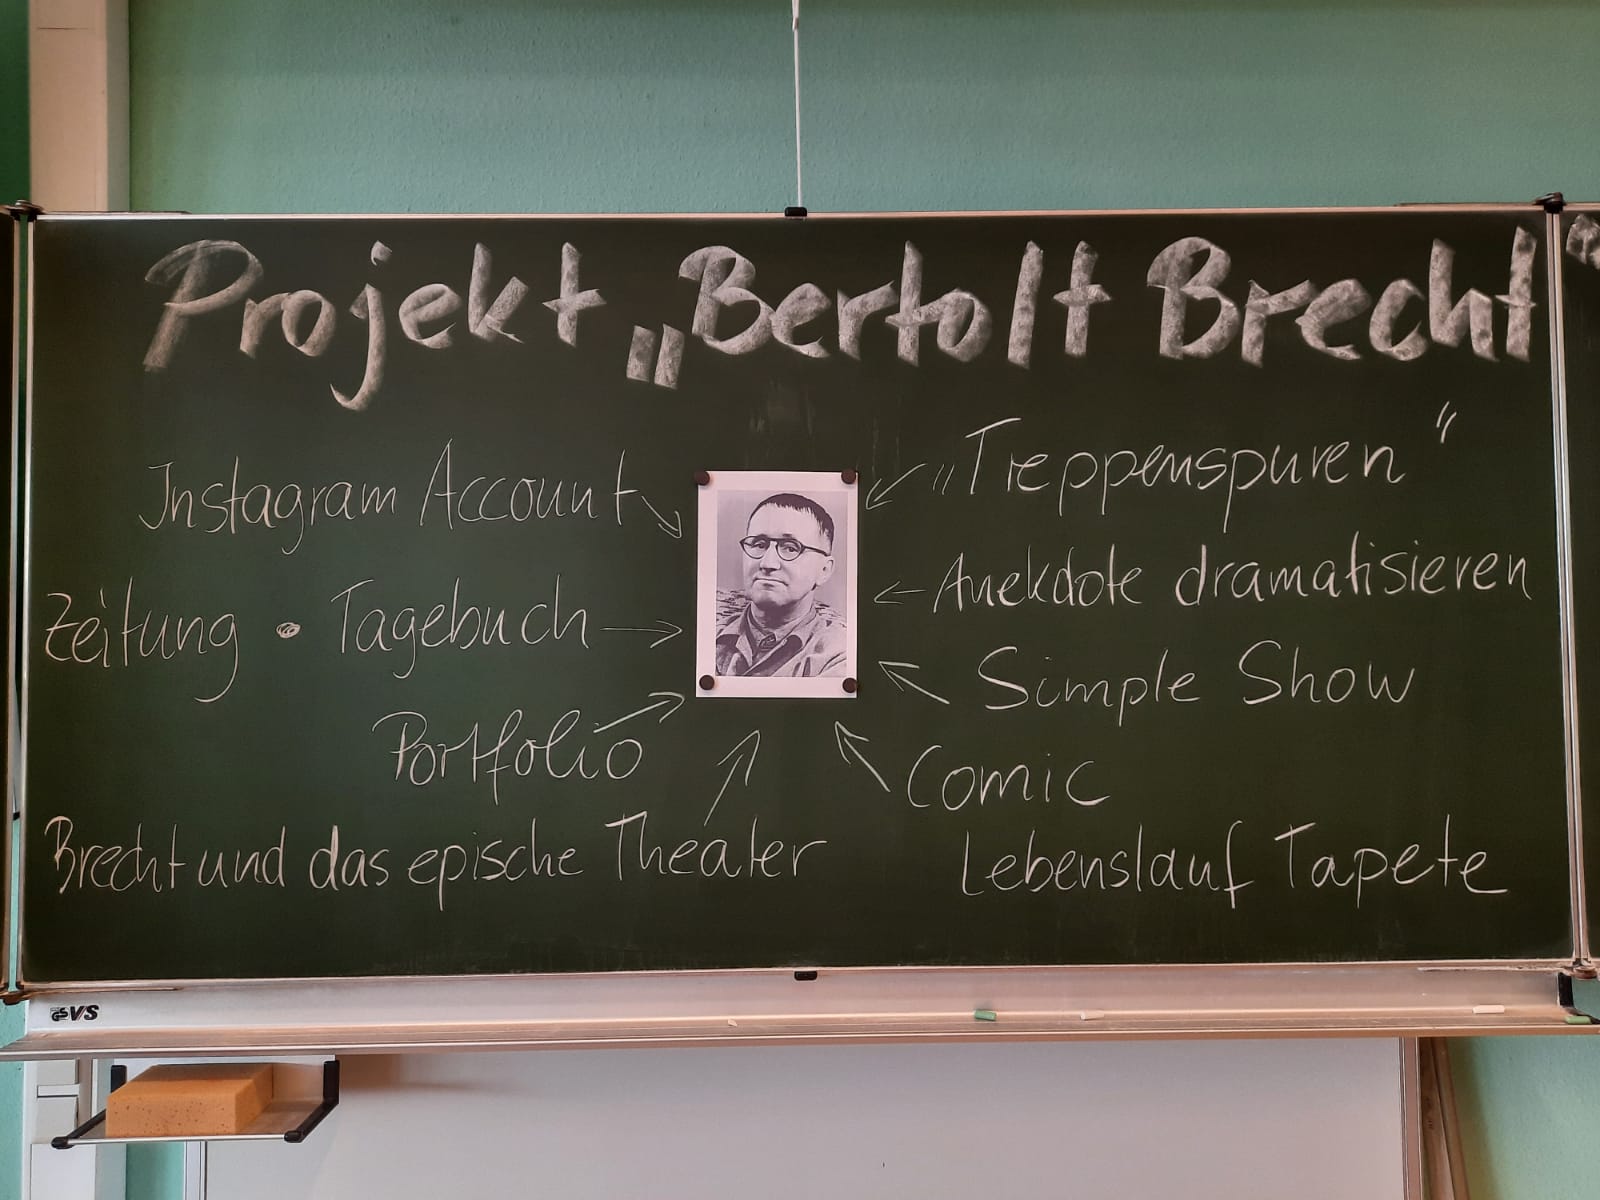 Projekt „Bertolt Brecht“
Instagram Account
Zeitung • Tagebuch
Portfolio
Brecht und das epische Theater
„Treppenspuren“
Anekdote dramatisieren
Simple Show
Comic
Lebenslauf Tapete
GS VS